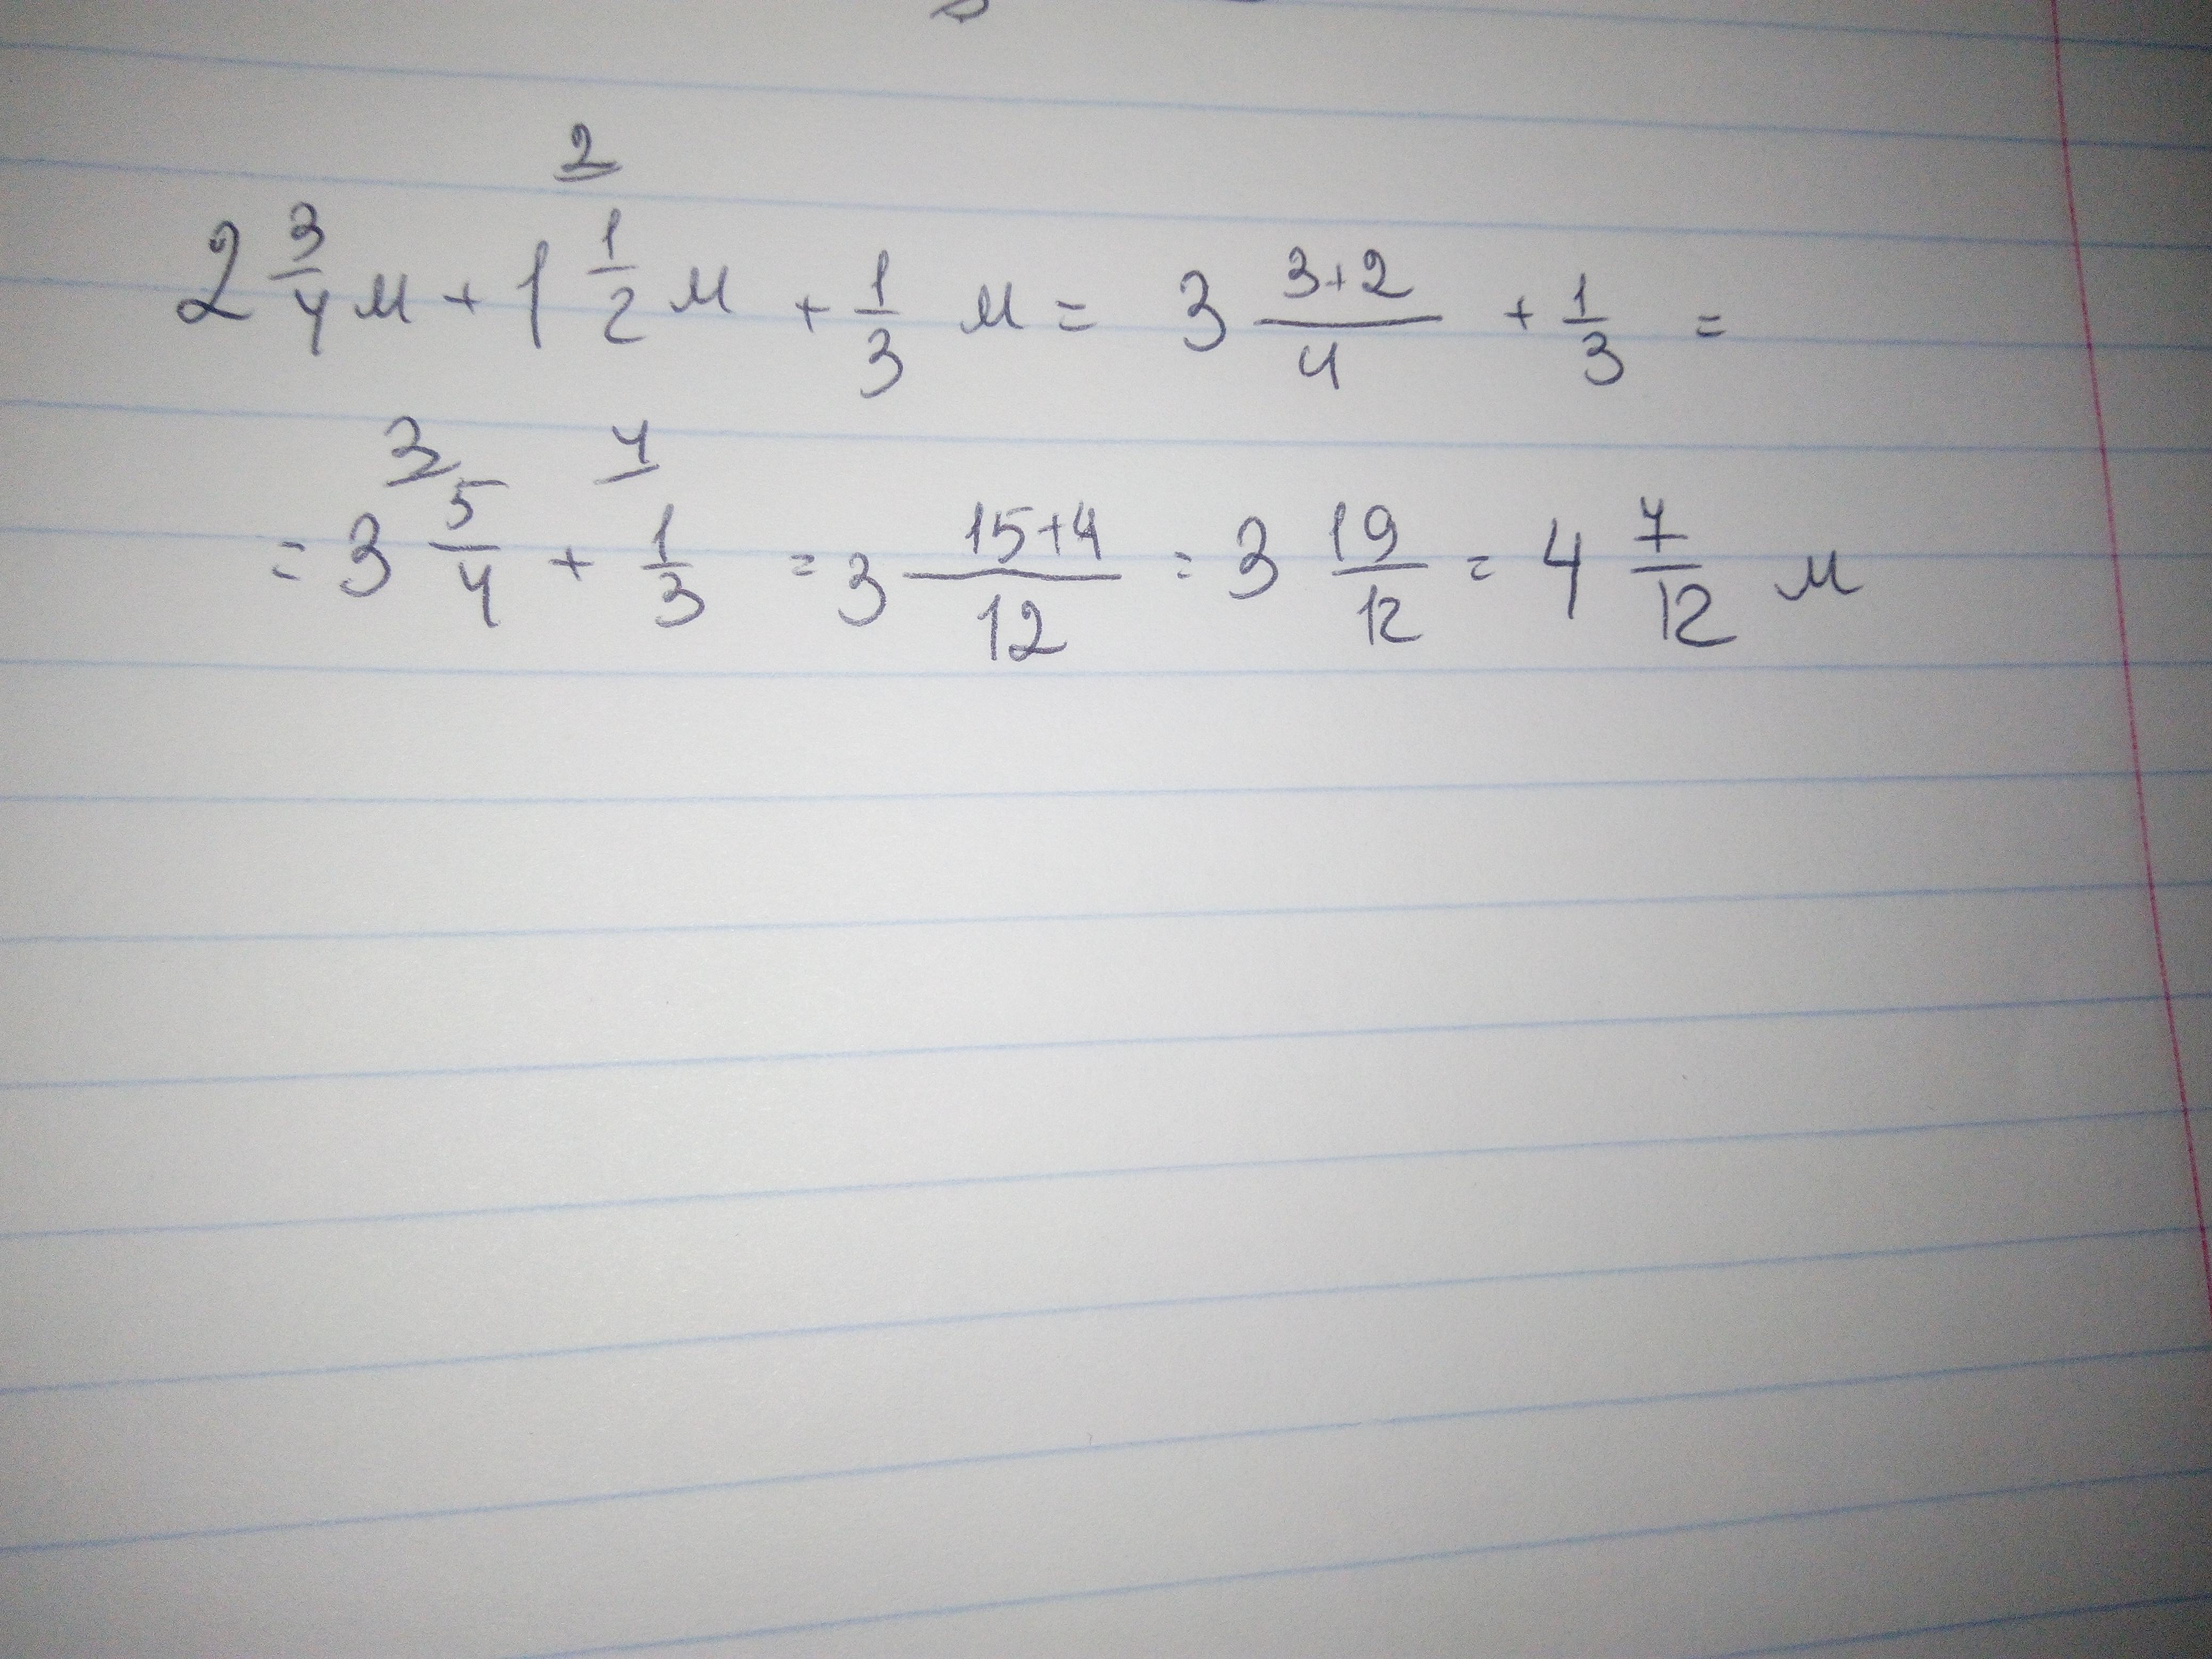 2 3/4 м + 1 1/2 (2) м + 1/3 м = 3 (3+2)/4 + 1/3 =
= 3 5/4 (3) + 1/3 (4) = 3 (15+4)/12 = 3 19/12 = 4 7/12 м